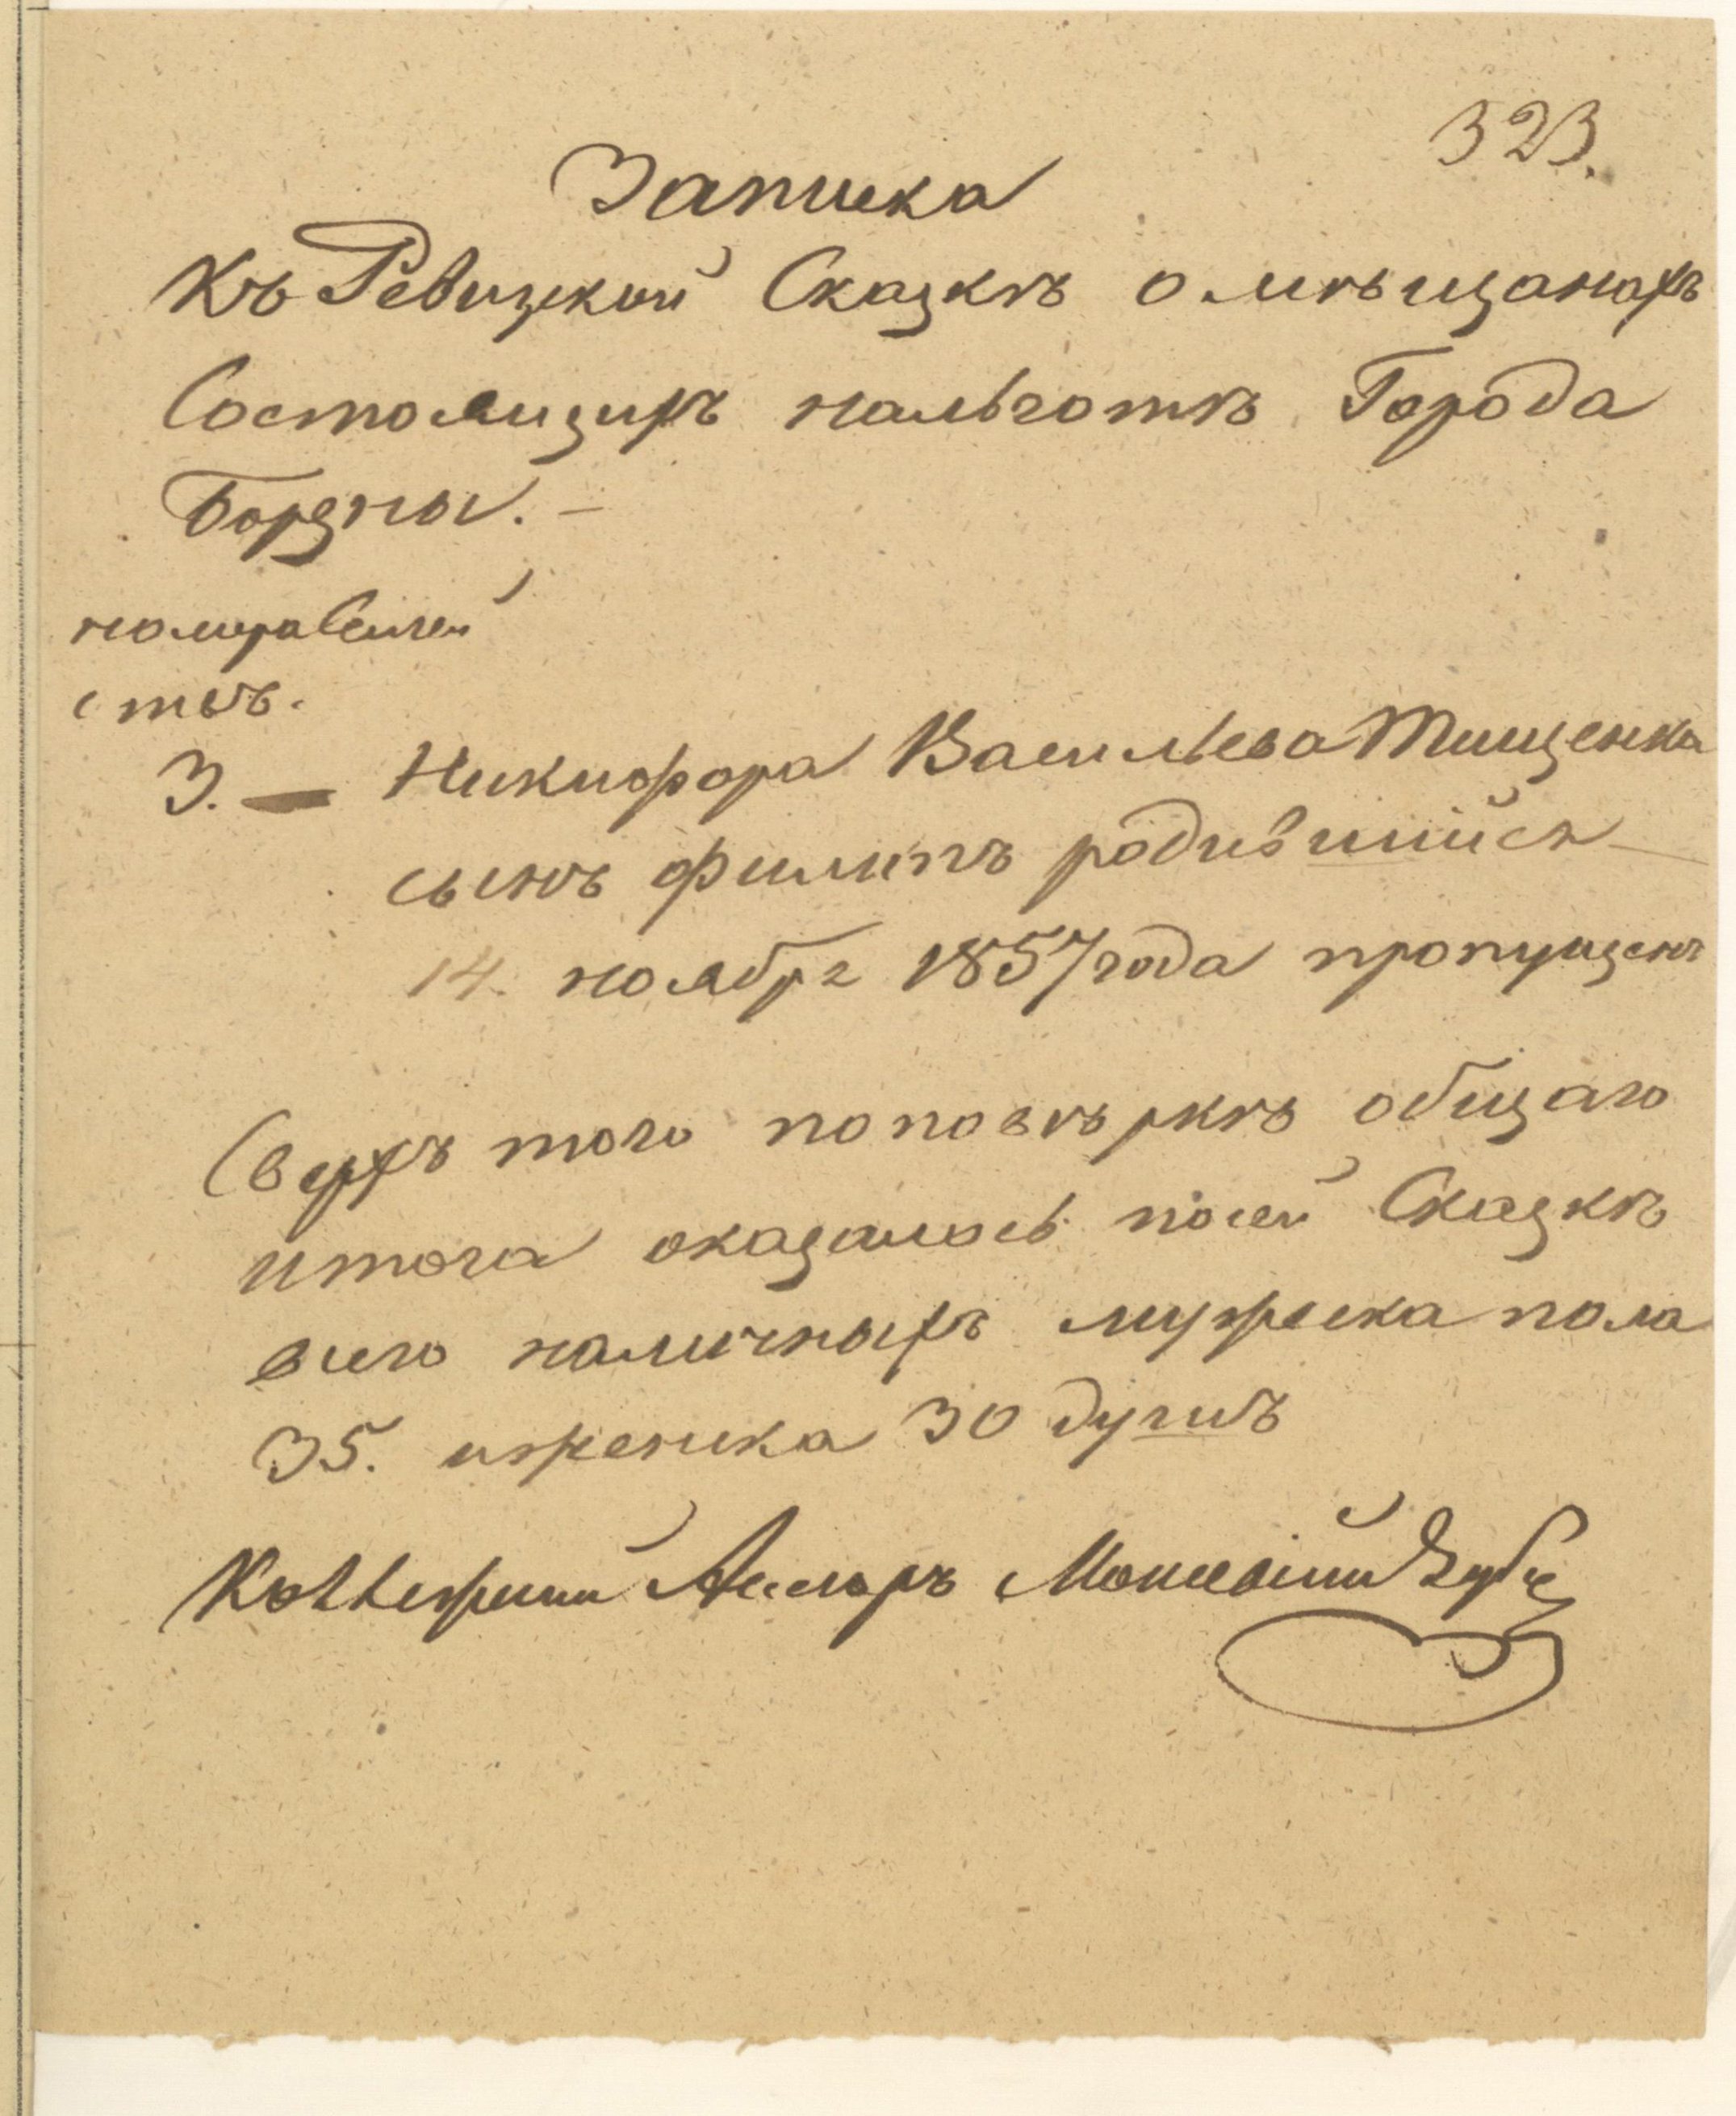 323.
Записка
Къ Ревизской Сказкѣ о мѣщанахъ
Состоящихъ нальготѣ Города
Борзны. —
номера Семей
ствъ.
3. — Никифора Васильева Тищенка
сынъ Филипъ родившийся
14. ноября 1857 года пропущенъ
Сверхъ того поповѣркѣ общаго
итога оказалось посей Сказкѣ
всего наличныхъ мужеска пола
35. иженска 30 душъ
Коллежский Асесоръ